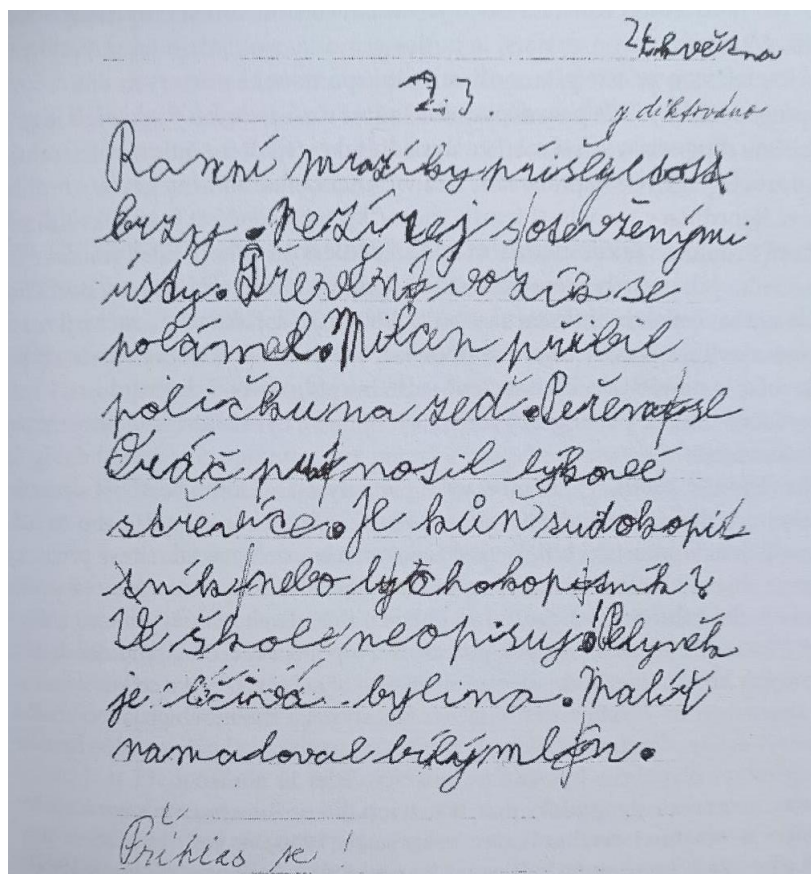 24. května
2.3
y diktováno
Ranní mrazíky prišly dost
brzy. Nezírej s otevřenými
ústy. Dřevěný vozík se
polámal. Milan přibil
poličku na zeď. Peřena se
Oráč prý nosil lykové
střevíce. Je kůň sudokopit
tník nebo lychokopitník?
Ve škole neopisuj! Pelyněk
je léčivá bylina. Malíř
namadoval bílý mlýn.
Prihlas se!